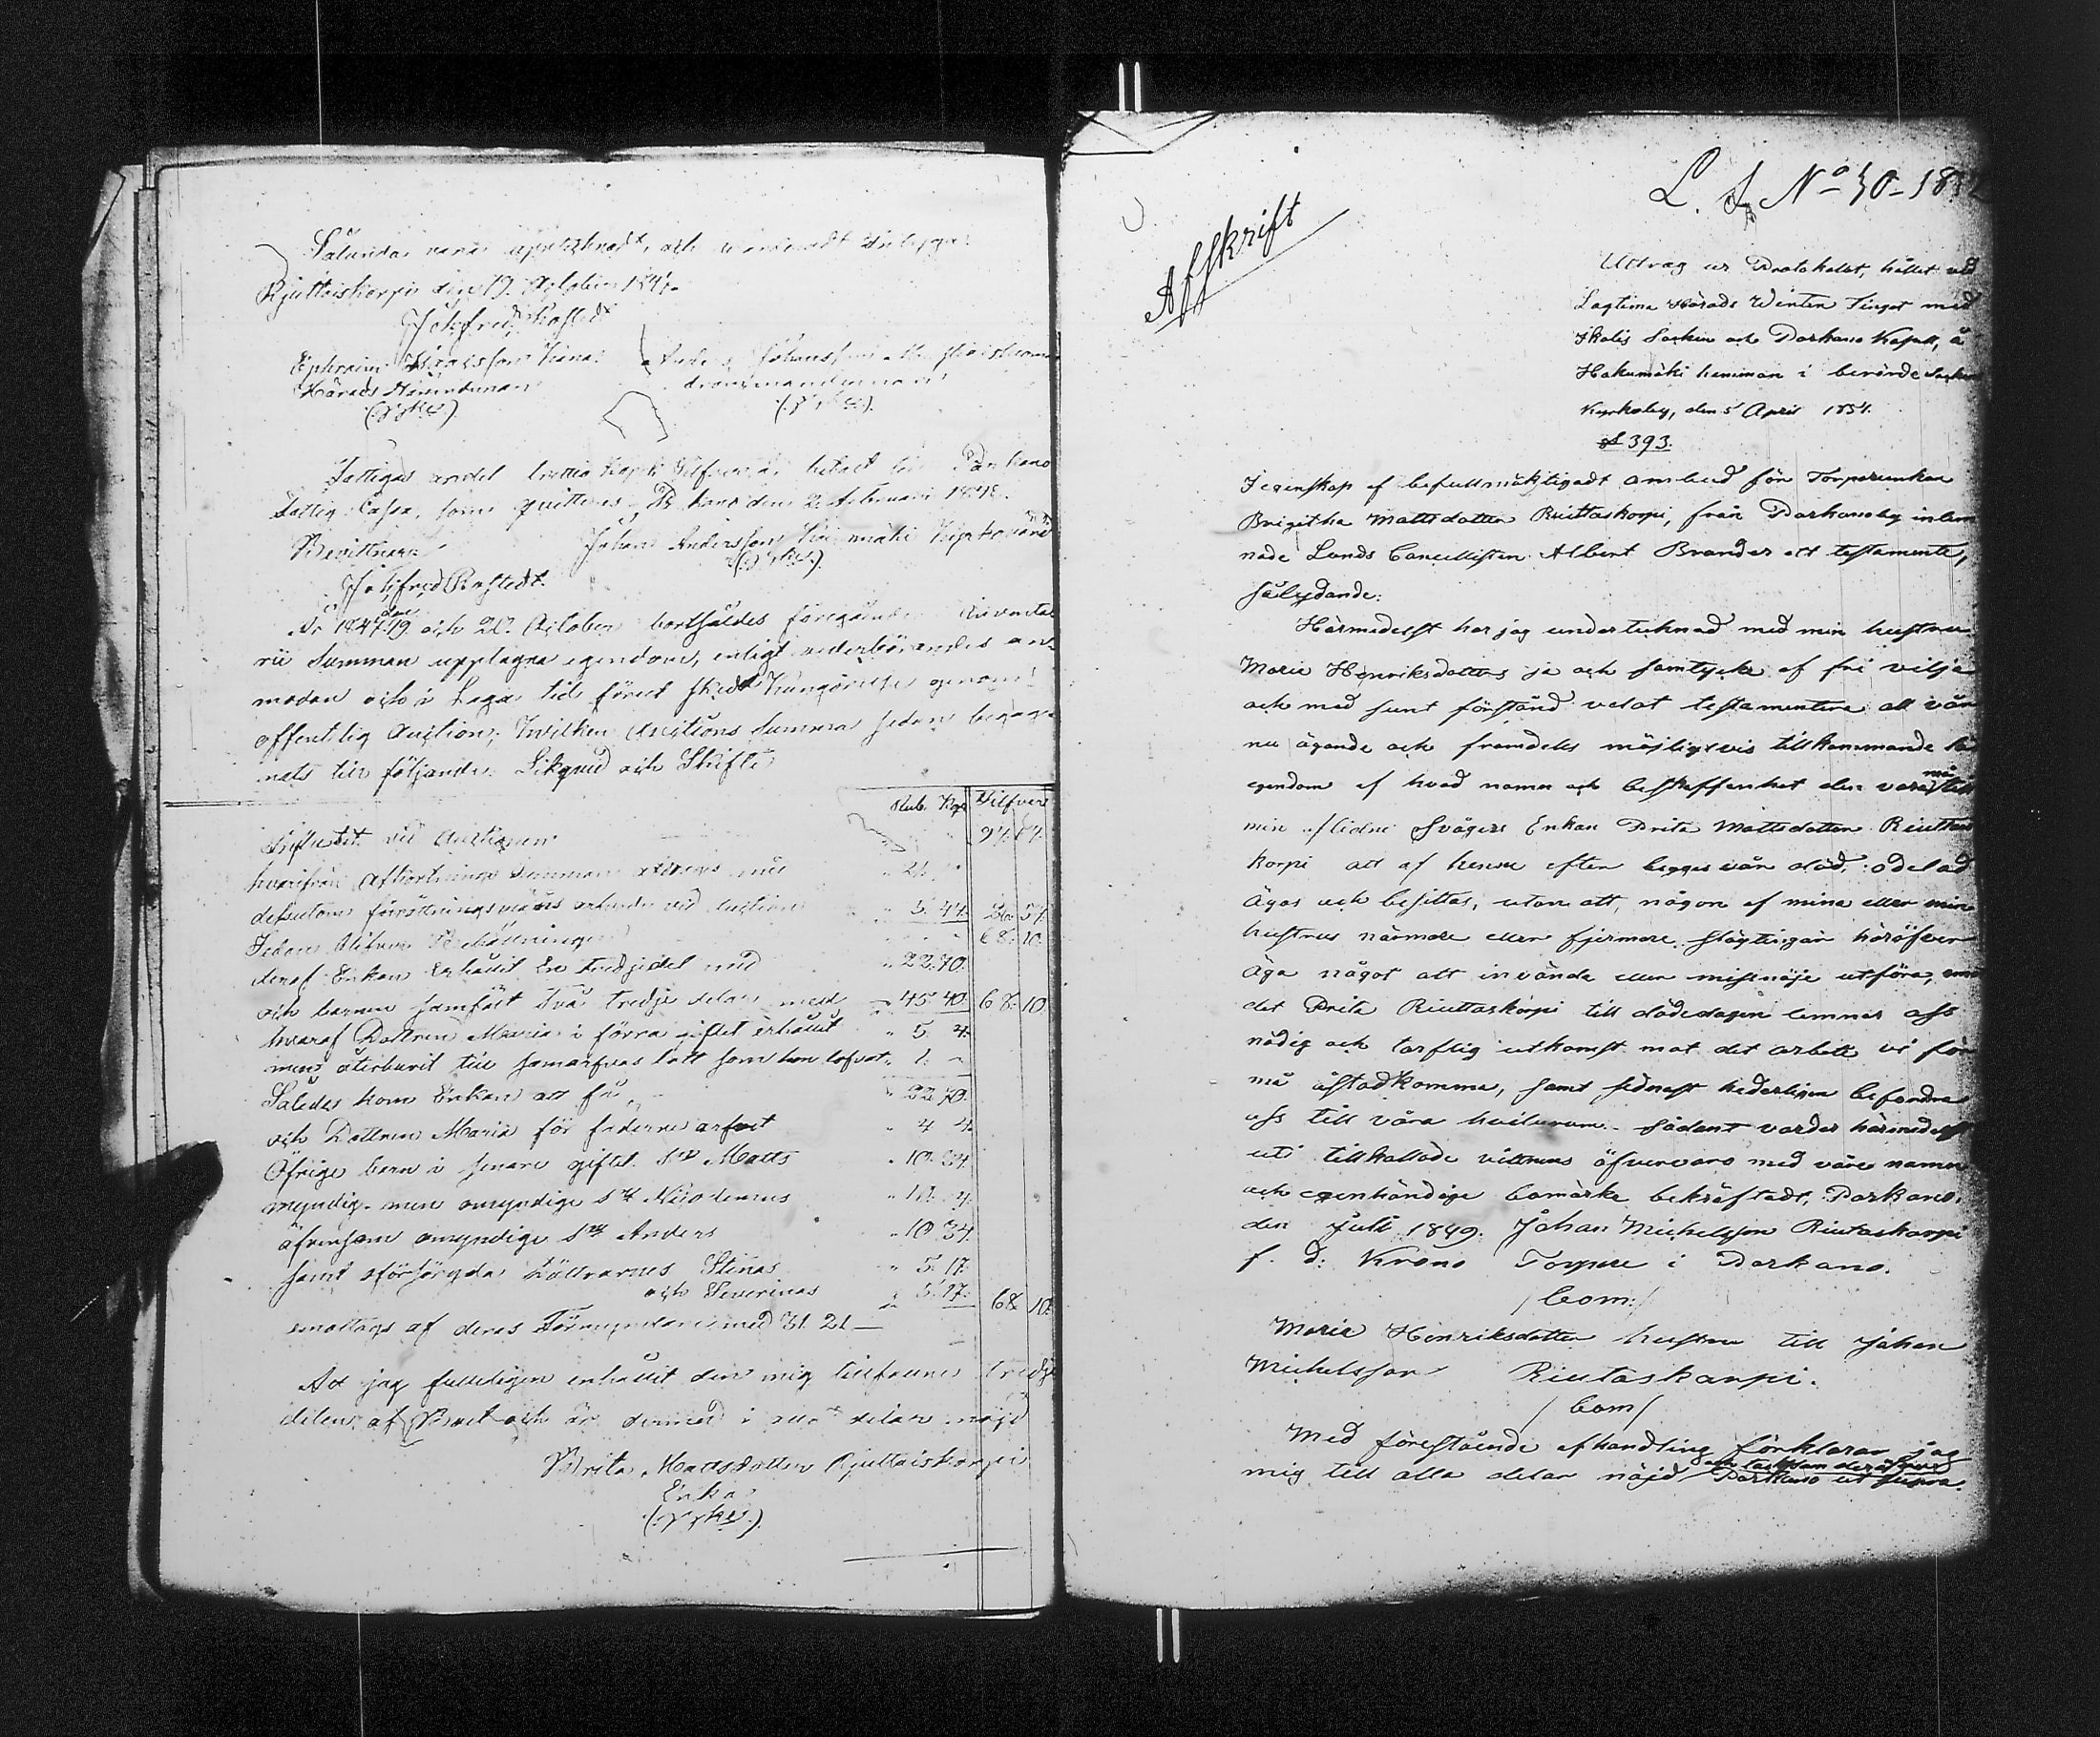 Sålunda vara upptecknadt och värderadt
Rjuttaiskorpi den 19. October 1847.
Ephraim
Härads Nämndeman
Anders Johansson
Fattigas andel
Fattig Cassa, som quitteras, den 2. Februari 1848.
Bevittnar
Johan Andersson
År 1847 den 19 och 20. October bortsåldes föregående
rii Summan upptagna egendom, enligt vederbörandes an-
modan och i Laga tid förut skedd Kungörelse genom
offentlig Auction; hvilken Auctions Summa sedan begag-
nats till följande Liqvid och Skifte
Rub. Kop. Silfver
Influtit vid Auctionen
94. 87.
hvarifrån Afkortnings Summan afdrages med
dessutom förrättningsmäns arfvode vid auction
Sedan blifver Behållningen
68. 10.
deraf Enkan Erhållit En tredjedel med
" 22. 70.
och barnen samfält Två tredje delar med
45. 40. 68. 10
hvaraf Dottren Maria i förra giftet erhållit
" 5. 4.
men återburit till samarfvas lott som hon lofvat
" 1. -
Således kom Enkan att få
" 22. 70.
och Dottren Maria för faderne arfvet
" 4 4
Öfrige barn i senare giftet. S:n Matts
" 10. 34.
myndig men omyndige S:n Nicodemus
äfvensom omyndige S:n Anders
" 10. 34.
samt oförsörgda döttrarnes Stinas
" 5. 17.
och Severinas
" 5. 17.
68 10.
emottags af deras Förmyndare med 31. 21 —
At jag fulleligen erhållit den mig tillfaune tredje
delen af Boet och är dermed i alla delar nöjd
Brita Mattsdotter Rjuttaiskorpi
Enka
Afskrift
L. No 30 - 18
Utdrag ur Protokolet, hållet vid
Lagtima Härads Winter Tinget med
Ikalis Socken och Parkano Kapell, å
Hakumäki hemman i berörde Socken
Kyrkoby, den 5 April 1851.
§ 393.
I egenskap af befullmäktigadt ombud för Torpareenkan
Brigitha Mattsdotter Riuttaskorpi, från Parkanoby inlem
nade Lands Cancellisten Albert Brander ett testamente,
sålydande:
Härmedelst har jag undertecknad med min hustru
Maria Henriksdotters ja och samtycke af fri vilja
och med sunt förstånd velat testamentera all vår
nu ägande och framdeles möjligtvis tillkommande
egendom af hvad namn och beskaffenhet den vara må till
min aflidne Svågers Enkan Brita Mattsdotter Riuttas
korpi att af henne efter begges vår död, odelad
ägas och besittas, utan att, någon af mina eller min
hustrus närmare eller fjermare slägtingar häröfver
äga något att invända eller missnöje utföra, emo
det Brita Riuttaskorpi till dödedagen lemnar oss
nödig och tarflig utkomst mot det arbete vi för
må åstadkomma, samt sednast hederligen befordra
oss till våra hvilorum. Sådant varder härmedelst
uti tillkallade vittnens öfvervaro med våre namn
och egenhändige bomärke bekräftadt, Parkano,
den Juli 1849. Johan Michelsson Riutaskorpi
f. d: Krono Torpare i Parkano.
/bom:/
Maria Henriksdotter hustru till Johan
Michelsson Riutaskorpi.
/bom/
Med förestående afhandling förklarar jag
mig till alla delar nöjd och tacksam deröfver Parkano ut supra.